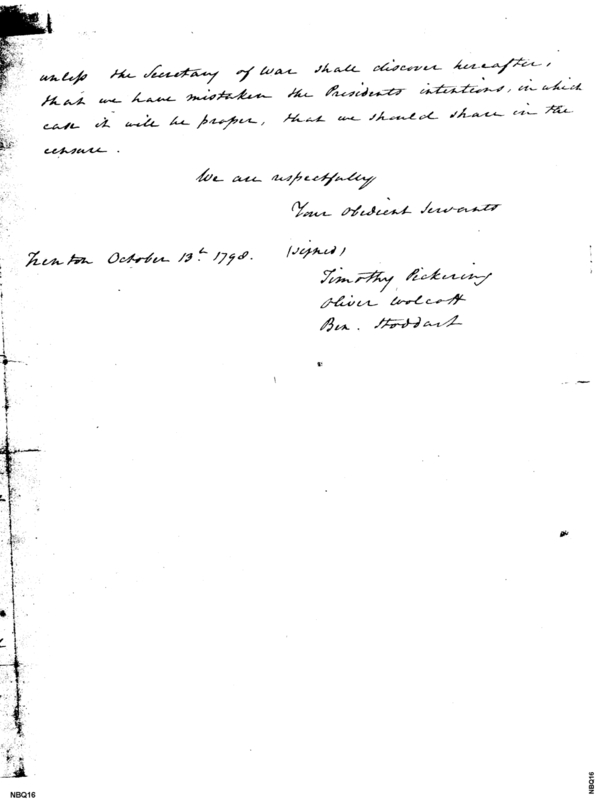 unless the Secretary of War shall discover hereafter,
that we have mistaken the Presidents intentions, in which
case it will be proper, that we should share in the
censure.
We are respectfully
Your Obedient Servants
Trenton October 13th 1798.
(signed)
Timothy Pickering
Oliver Wolcott
Ben. Stoddart
NBQ16
NBQ16